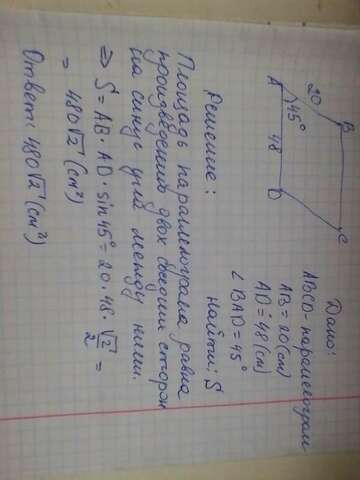 Дано:
ABCD - параллелограм
AB = 20 (см)
AD = 48 (см)
∠BAD = 45°
Найти: S
B
C
20
45°
A
48
D
Решение:
Площадь параллелограма равна
произведению двух сторон
на синус угла между ними.
⇒ S = AB · AD · sin 45° = 20 · 48 · √2/2 =
= 480√2 (см²)
Ответ: 480√2 (см²)